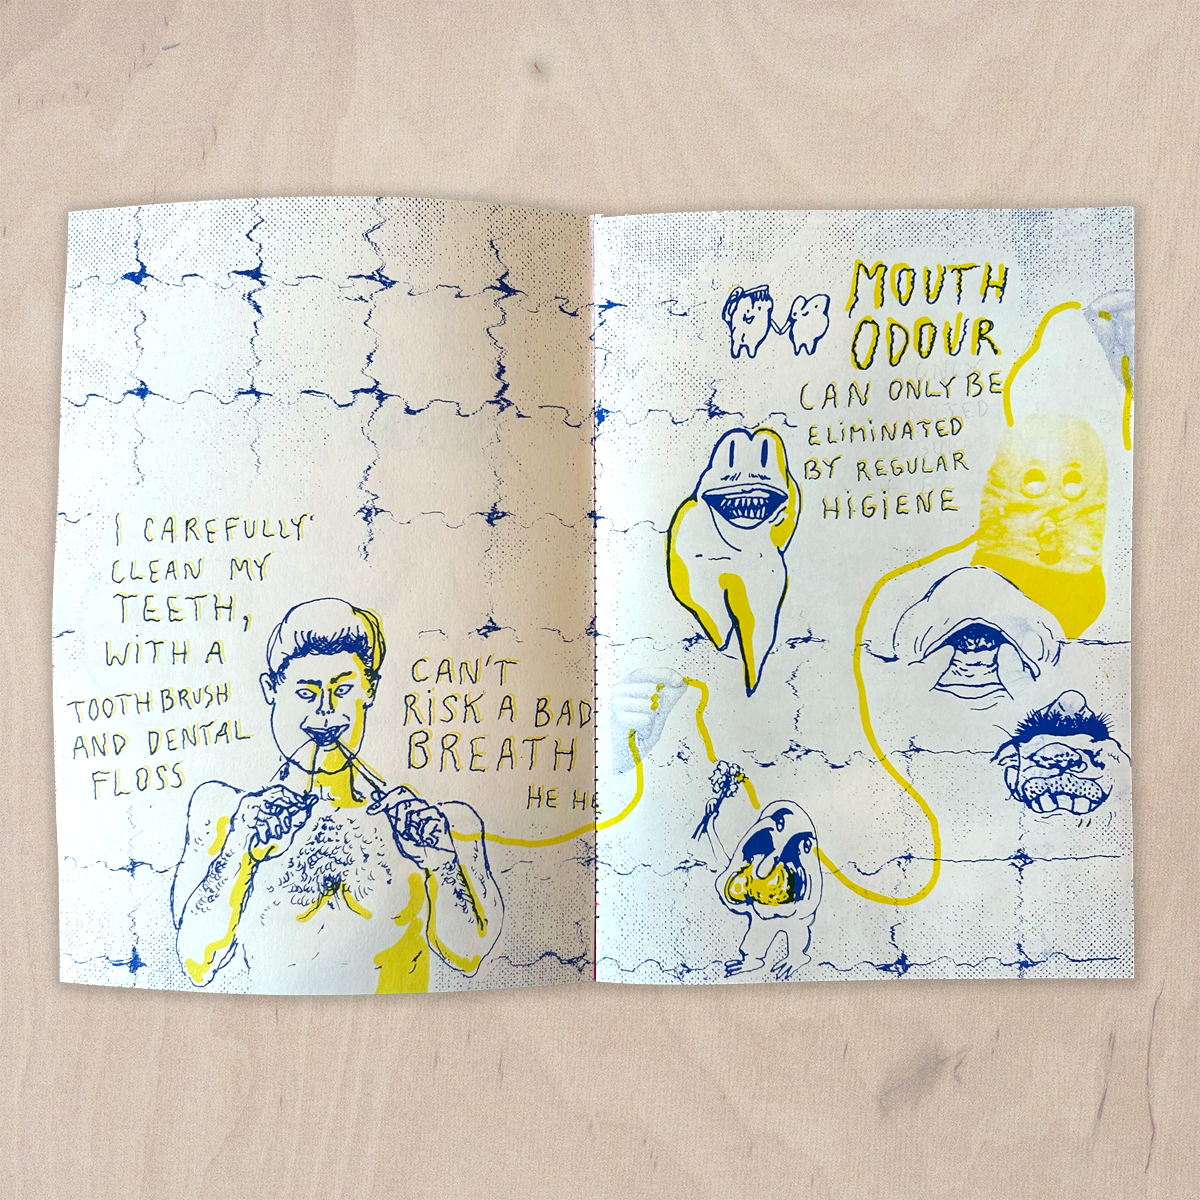 I CAREFULLY
CLEAN MY
TEETH,
WITH A
TOOTHBRUSH
AND DENTAL
FLOSS
CAN'T
RISK A BAD
BREATH
HE HE
MOUTH
ODOUR
CAN ONLY BE
ELIMINATED
BY REGULAR
HIGIENE